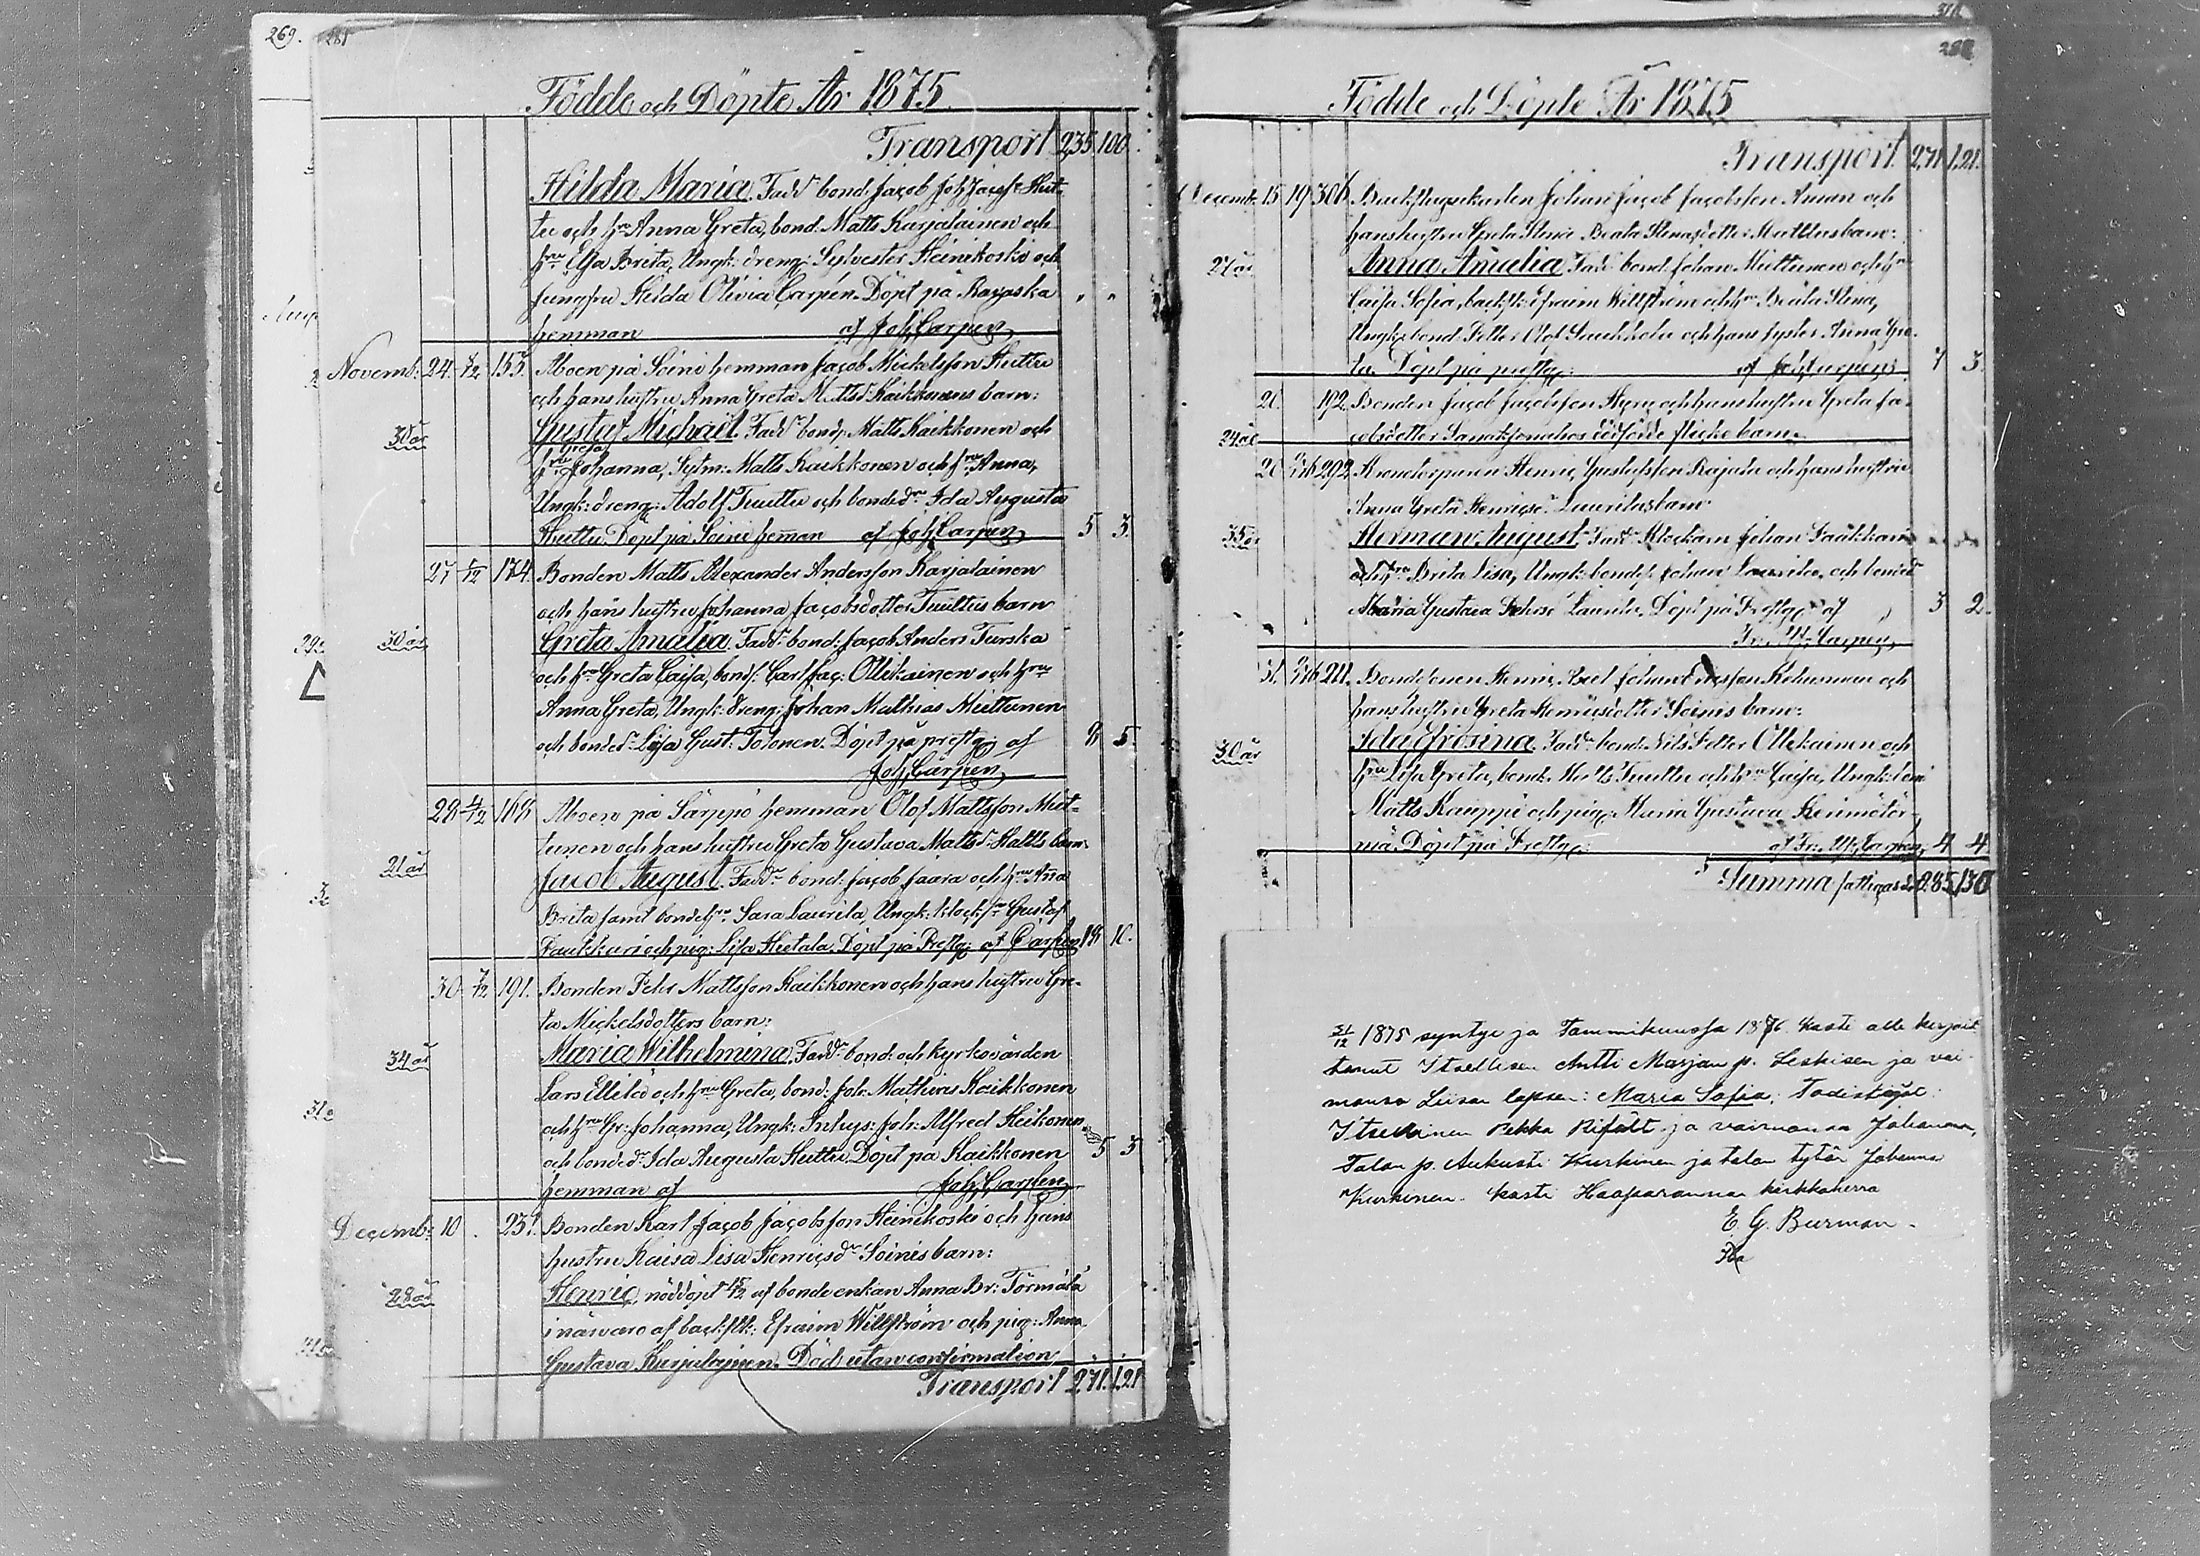 269.
281
Födde och Döpte År 1875.
Transport 235 100.
Hilda Maria. Fadd: bond: Jacob Joh: Jacobss: Hut-
tu och hu Anna Greta, bond: Matts Karjalainen och
hru Elsa Brita, Ungk: dreng: Sylvester Heinikoski och
Jungfru Hilda Olivia Carpén. Döpt på
hemman af Joh. Carpen
Novemb: 24. 155. Åboen på Soini hemman Jacob Mickelsson Huttu
och hans hustru Anna Greta Mattsd: Kaikkonens barn:
30 år Gustaf Michaël. Fadd: bond: Matts Kaikkonen och
Greta
hru Johanna, Sytn: Matts Kaikkonen och hru Anna,
Ungk: dreng: Adolf Tuuttu och bonded: Ida Augusta
Huttu. Döpt på Soini hemman af Joh. Carpen 5 3.
27 174. Bonden Matts Alexander Andersson Karjalainen
och hans hustru Johanna Jacobsdotter Tuuttus barn
30 år Greta Amalia. Fadd: bond: Jacob Anders Turska
och hru Greta Caisa, bonds: Carl Jac: Ollikainen och hru
Anna Greta, Ungk: dreng: Johan Mathias Miettunen
och bonded: Lisa Gust: Tolonen. Döpt på prestg: af 8 5.
Joh. Carpen
28 4/12 168. Åboen på Särppö hemman Olof Mattsson Miet-
tunen och hans hustru Greta Gustava Mattsd: Hallts barn
21 år Jacob August. Fadd: bond: Jacob Jaara och hru Anna
Brita samt bondehru Sara Laurila, Ungk: klocks: Gustaf
och pig: Lisa Hietala. Döpt på Prestg: af Carpen 18 10.
30 191. Bonden Pehr Mattsson Kaikkonen och hans hustru Gre-
ta Mickelsdotters barn:
34 år Maria Wilhelmina. Fadd: bond: och kyrkovärden
Lars Ellilä och hru Greta, bond: Joh: Mathias Kaikkonen
och hru Gr: Johanna, Ungk: Inhys: Joh: Alfred Heikonen
och bonded: Ida Augusta Huttu. Döpt på Kaikkonen 5 3
hemman af Joh. Carpen
Decemb: 10. 231. Bonden Karl Jacob Jacobsson Heinikoski och hans
hustru Kaisa Lisa Henricsd: Soinis barn:
28 år Henric, nöddöpt af bonde enkan Anna Br: Törmälä
i närvaro af backstk: Efraim Willström och pig: Anna
Gustava Karjalainen. Död utan confirmation
Transport 271. 121
Födde och Döpte År 1875
Transport 271. 121.
Decemb: 15 19 306. Backstugukarlen Johan Jacob Jacobsson Åman och
hans hustru Greta Stina Beata Stenasdotter barn:
27 år Anna Amalia. Fadd: bond: Johan Miettunen och hru
Caisa Sofia, backstk: Efraim Willström och hru Beata Stena,
Ungk: bond: Petter Olof och hans syster Anna Gre-
ta. Döpt på prestg: af Joh. Carpen 7 3.
20. 192. Bonden Jacob Jacobsson och hans hustru Greta Ja-
24 år cobsdotter dödfödde flickebarn.
20 292. Kronotorparen Henric Gustafsson Rajala och hans hustru
Anna Greta Henricsd: Laurilas barn
35 år Herman August. Fadd: Klockarn Johan
och hru Brita Lisa, Ungk: bondes: Johan Laurila, och bonded:
Maria Gustava Laurila. Döpt på Prestg: af 3 2.
Fr: W: Carpen
31. 211. Bondesonen Henric Axel Johan Ericsson och
hans hustru Greta Henricsdotter Soinis barn:
30 år Ida Efrosina. Fadd: bond: Nils Petter Ollikainen och
hru Lisa Greta, bond: Matts Tuuttu och hru Caisa, Ungk:
Matts Kauppi och pig: Maria Gustava
mä. Döpt på Prestg: af Fr: W: Carpen 4 4.
Summa 285 130
31/12 1875 syntyi ja Tammikuussa 1876 kasti alle kirjoit
tanut Itsellisen Antti Marjan p. Leskisen ja vai-
monsa Liisan lapsen: Maria Sofia; Todistajat:
Itsellinen Pekka ja vaimonsa Johanna,
Talon p. Aukusti Kurkinen ja talon tytär Johanna
Kurkinen. kasti Haaparannan kirkkoherra
E. G. Burman.